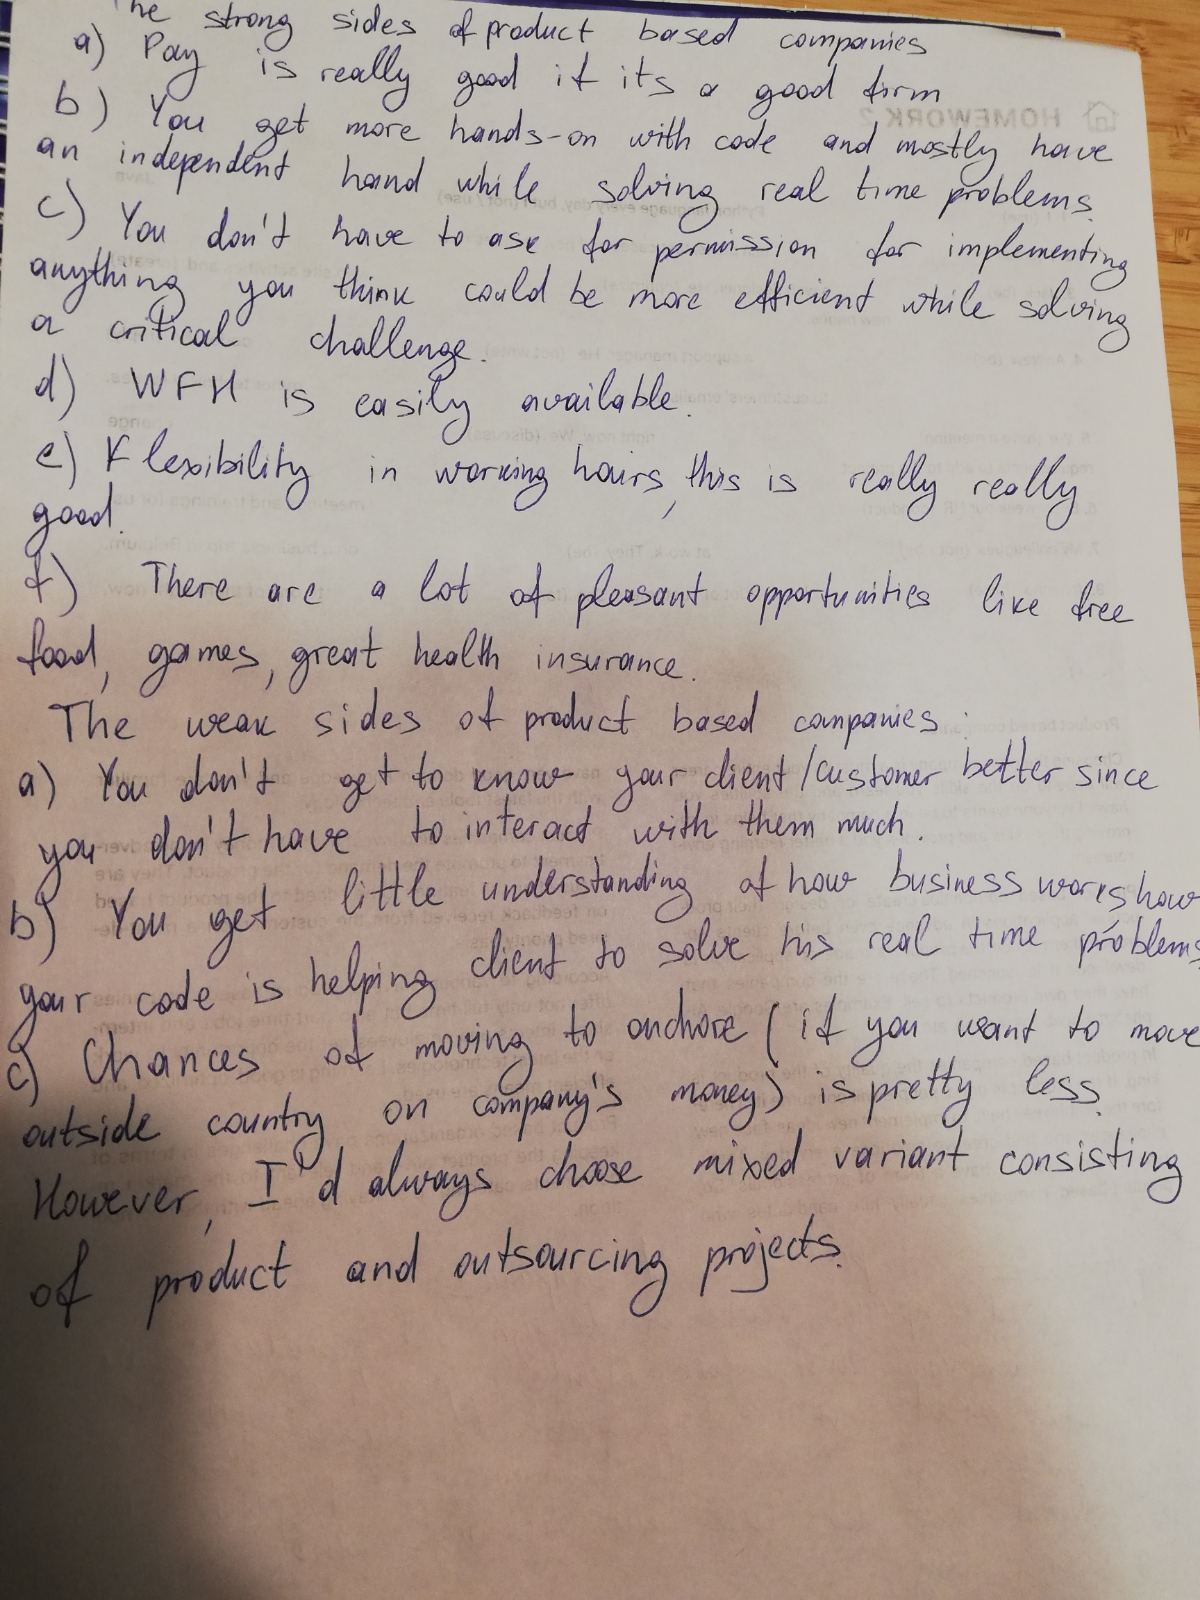 The strong sides of product based companies
a) Pay is really good if its a good firm
b) You get more hands-on with code and mostly have
an independent hand while solving real time problems.
c) You don't have to ask for permission for implementing
anything you think could be more efficient while solving
a critical challenge.
d) WFH is easily available.
e) Flexibility in working hours, this is really really
good.
f) There are a lot of pleasant opportunities like free
food, games, great health insurance.
The weak sides of product based companies:
a) You don't get to know your client/customer better since
you don't have to interact with them much.
b) You get little understanding of how business works how
your code is helping client to solve his real time problems
c) Chances of moving to onchore (if you want to move
outside country on company's money) is pretty less.
However, I'd always choose mixed variant consisting
of product and outsourcing projects.
HOMEWORK 2